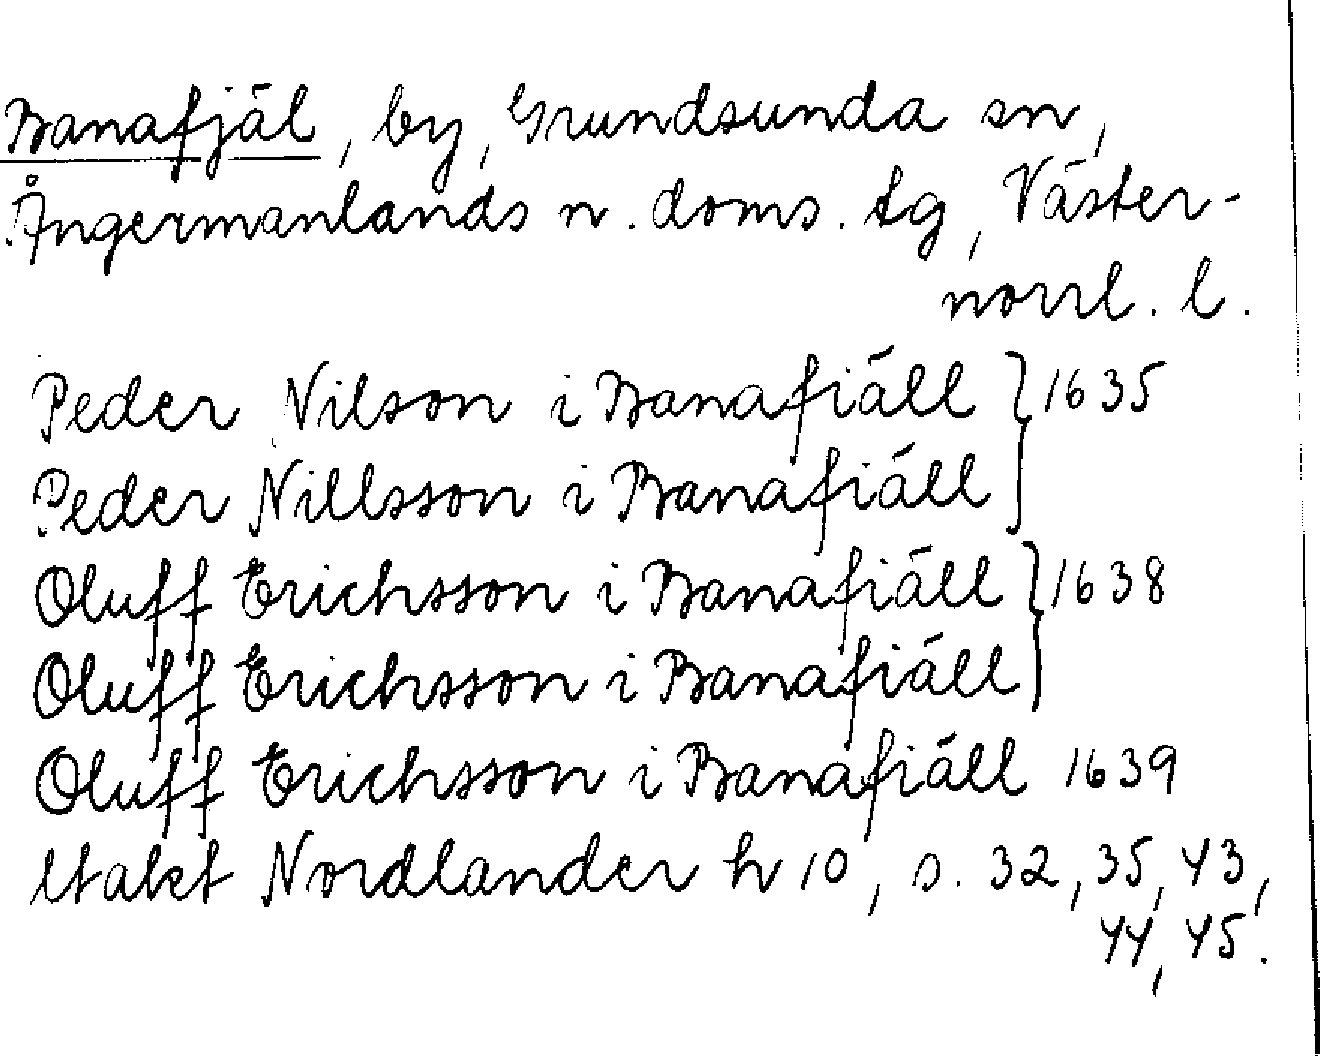 Banafjäl, by, Grundsunda sn,
Ångermanlands n. doms. tg, Väster-
norrl. l.
Peder Nilson i Banafiäll } 1635
Peder Nillsson i Banafiäll
Oluff Erichsson i Banafiäll } 1638
Oluff Erichsson i Banafiäll
Oluff Erichsson i Banafiäll 1639
Utalet Nordlander h 10, s. 32, 35, 43,
44, 45.